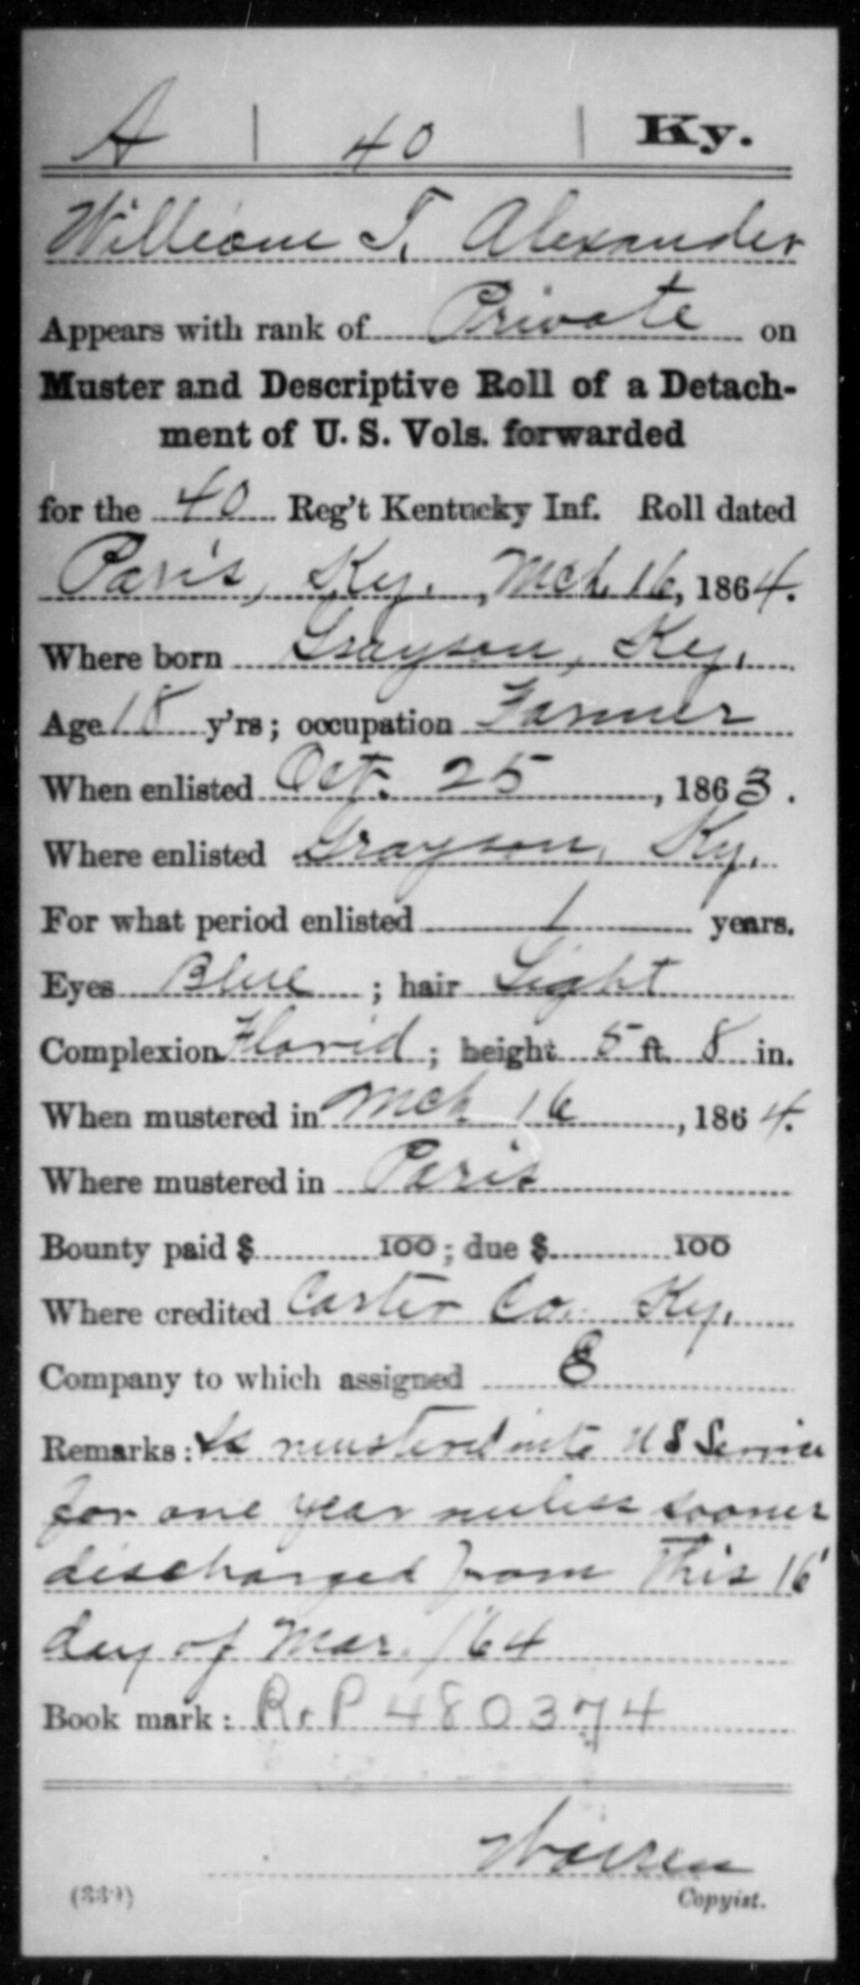 A | 40 | Ky.
William T. Alexander
Appears with rank of Private on
Muster and Descriptive Roll of a Detach-
ment of U. S. Vols. forwarded
for the 40 Reg't Kentucky Inf. Roll dated
Paris, Ky., Mch. 16, 1864.
Where born Grayson, Ky.
Age 18 y'rs; occupation Farmer
When enlisted Oct. 25, 1863.
Where enlisted Grayson, Ky.
For what period enlisted 1 years.
Eyes Blue; hair Light
Complexion Florid; height 5 ft. 8 in.
When mustered in Mch 16, 1864.
Where mustered in Paris
Bounty paid $ 100; due $ 100
Where credited Carter Co. Ky.
Company to which assigned
Remarks: Is mustered into U S Service
for one year unless sooner
discharged from This 16
day of Mar. /64
Book mark: R. & P 480374
Warren
(339) Copyist.